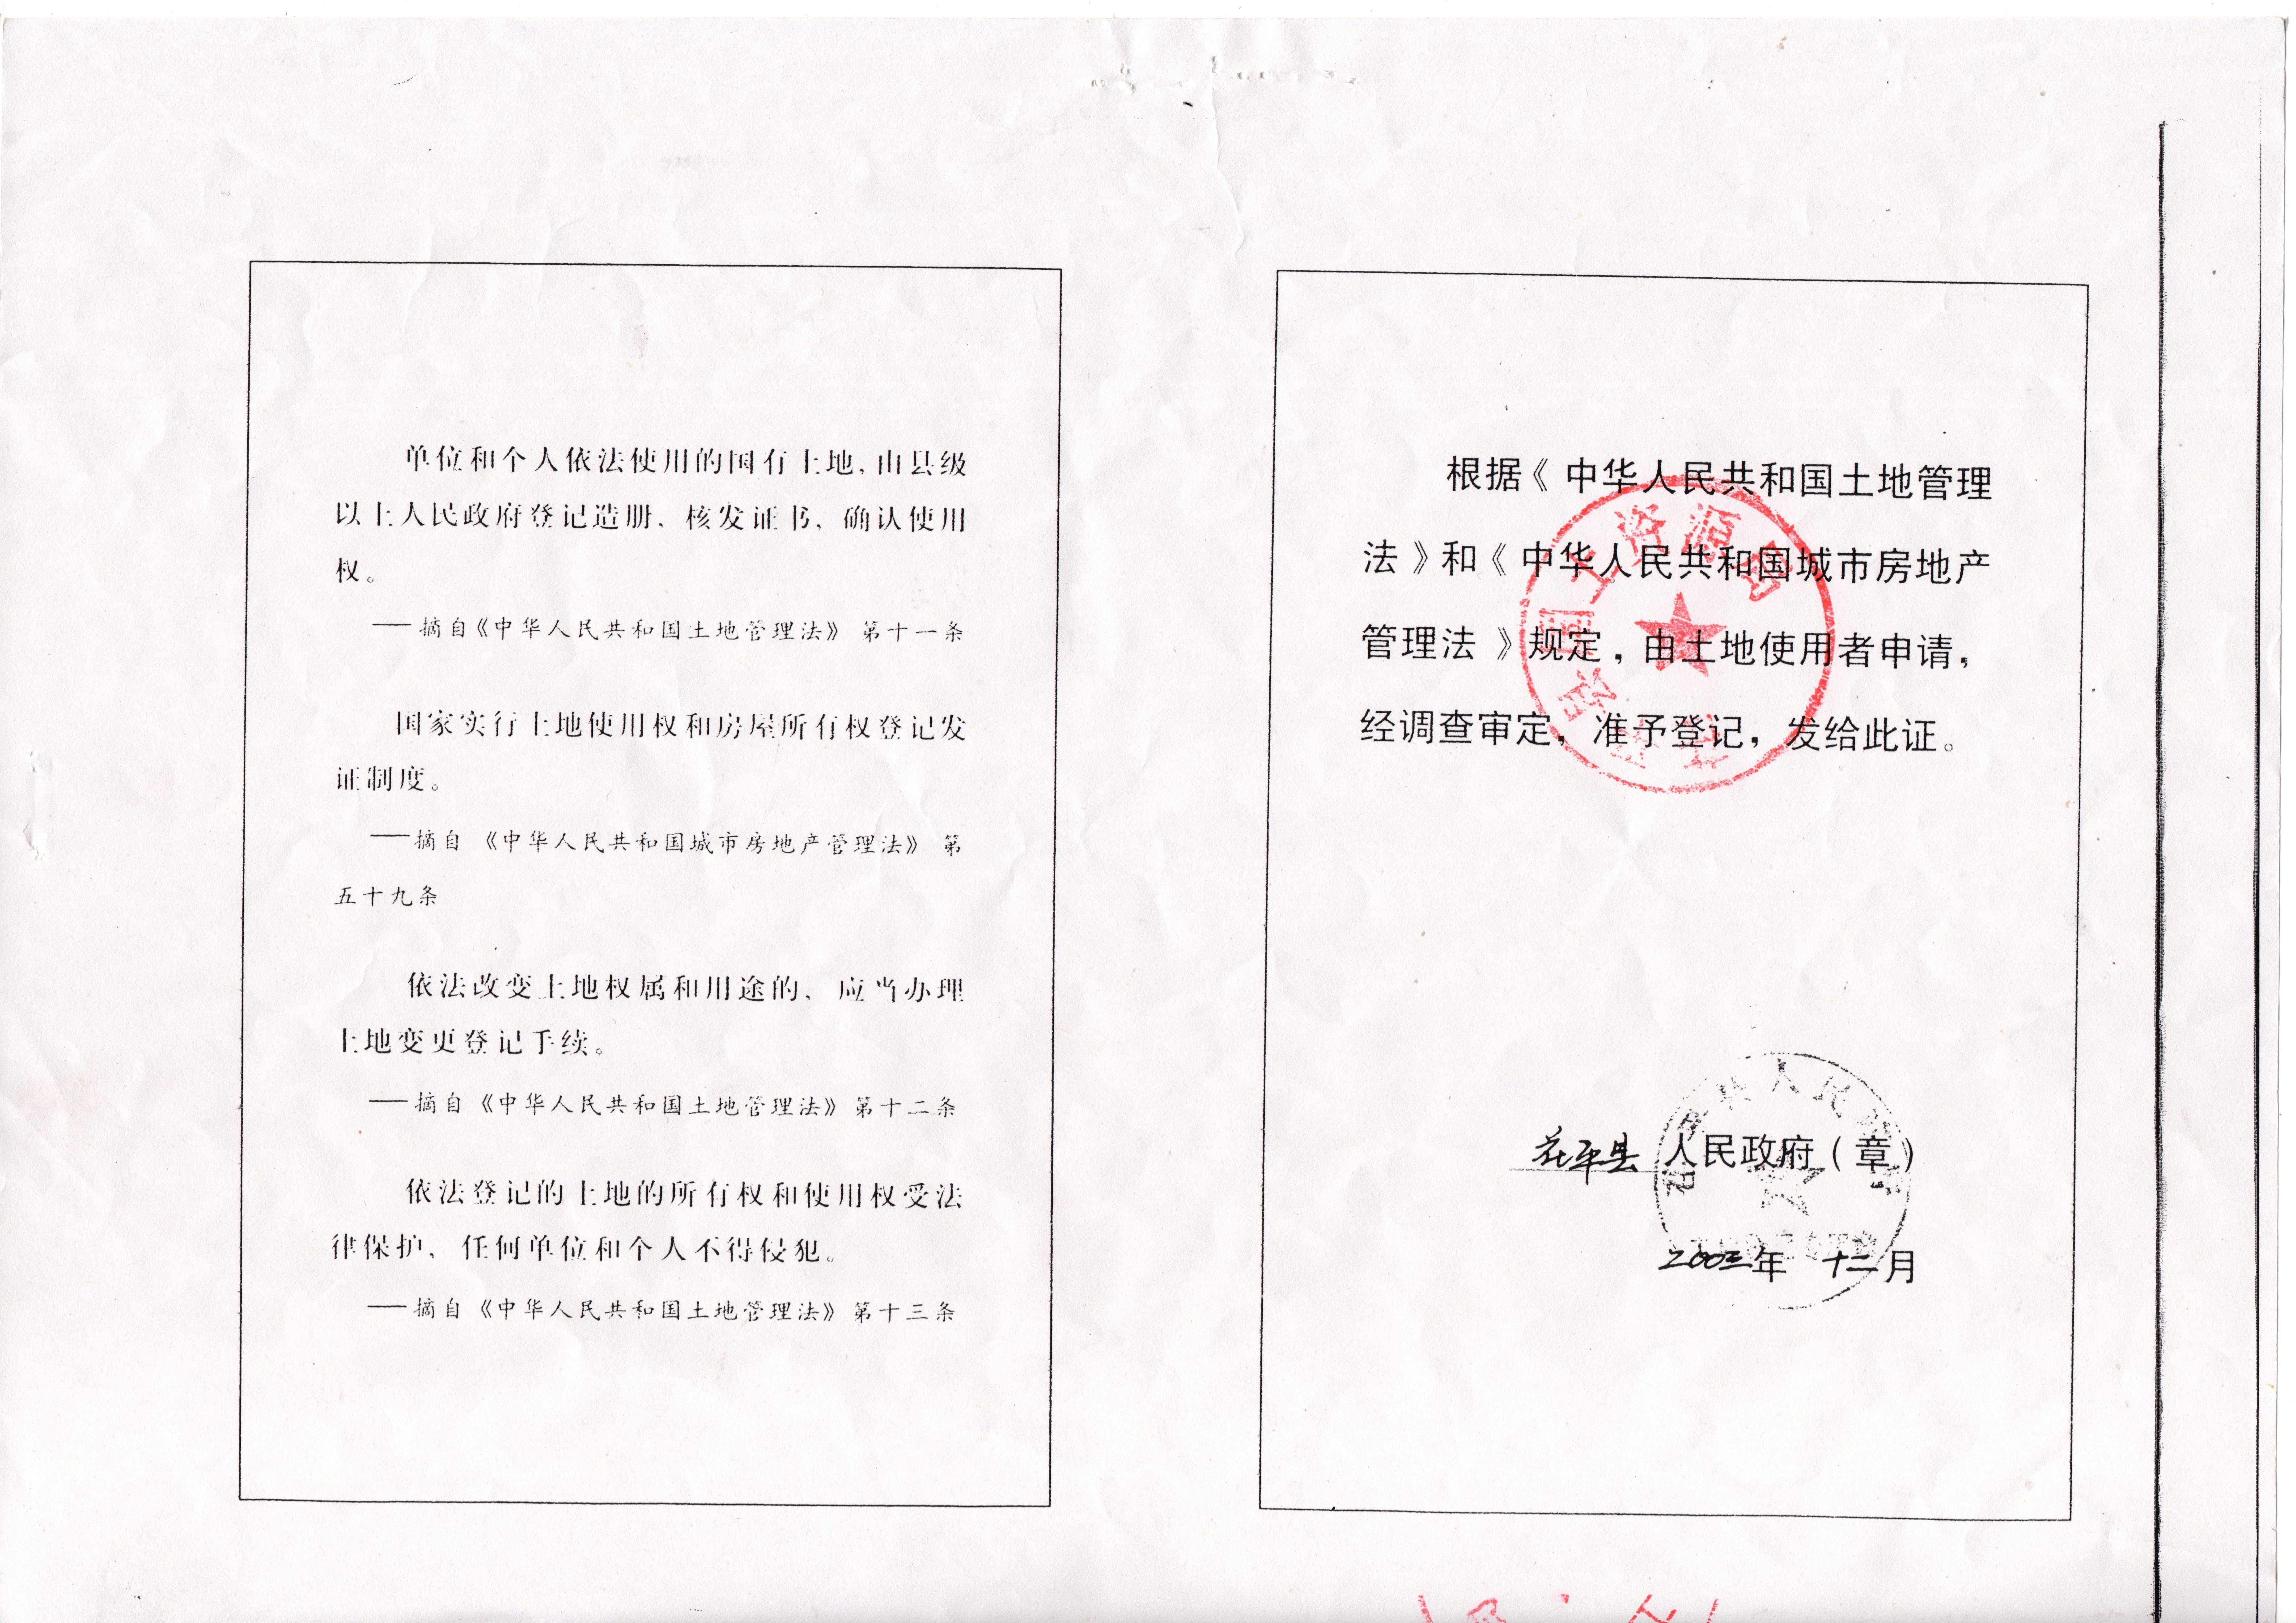 单位和个人依法使用的国有土地,由县级
以上人民政府登记造册、核发证书、确认使用
权。
——摘自《中华人民共和国土地管理法》第十一条
国家实行土地使用权和房屋所有权登记发
证制度。
——摘自《中华人民共和国城市房地产管理法》第
五十九条
依法改变土地权属和用途的、应当办理
土地变更登记手续。
——摘自《中华人民共和国土地管理法》第十二条
依法登记的土地的所有权和使用权受法
律保护、任何单位和个人不得侵犯。
——摘自《中华人民共和国土地管理法》第十三条
根据《中华人民共和国土地管理
法》和《中华人民共和国城市房地产
管理法》规定,由土地使用者申请,
经调查审定,准予登记,发给此证。
国土资源
人民政府(章)
2003年 十二月